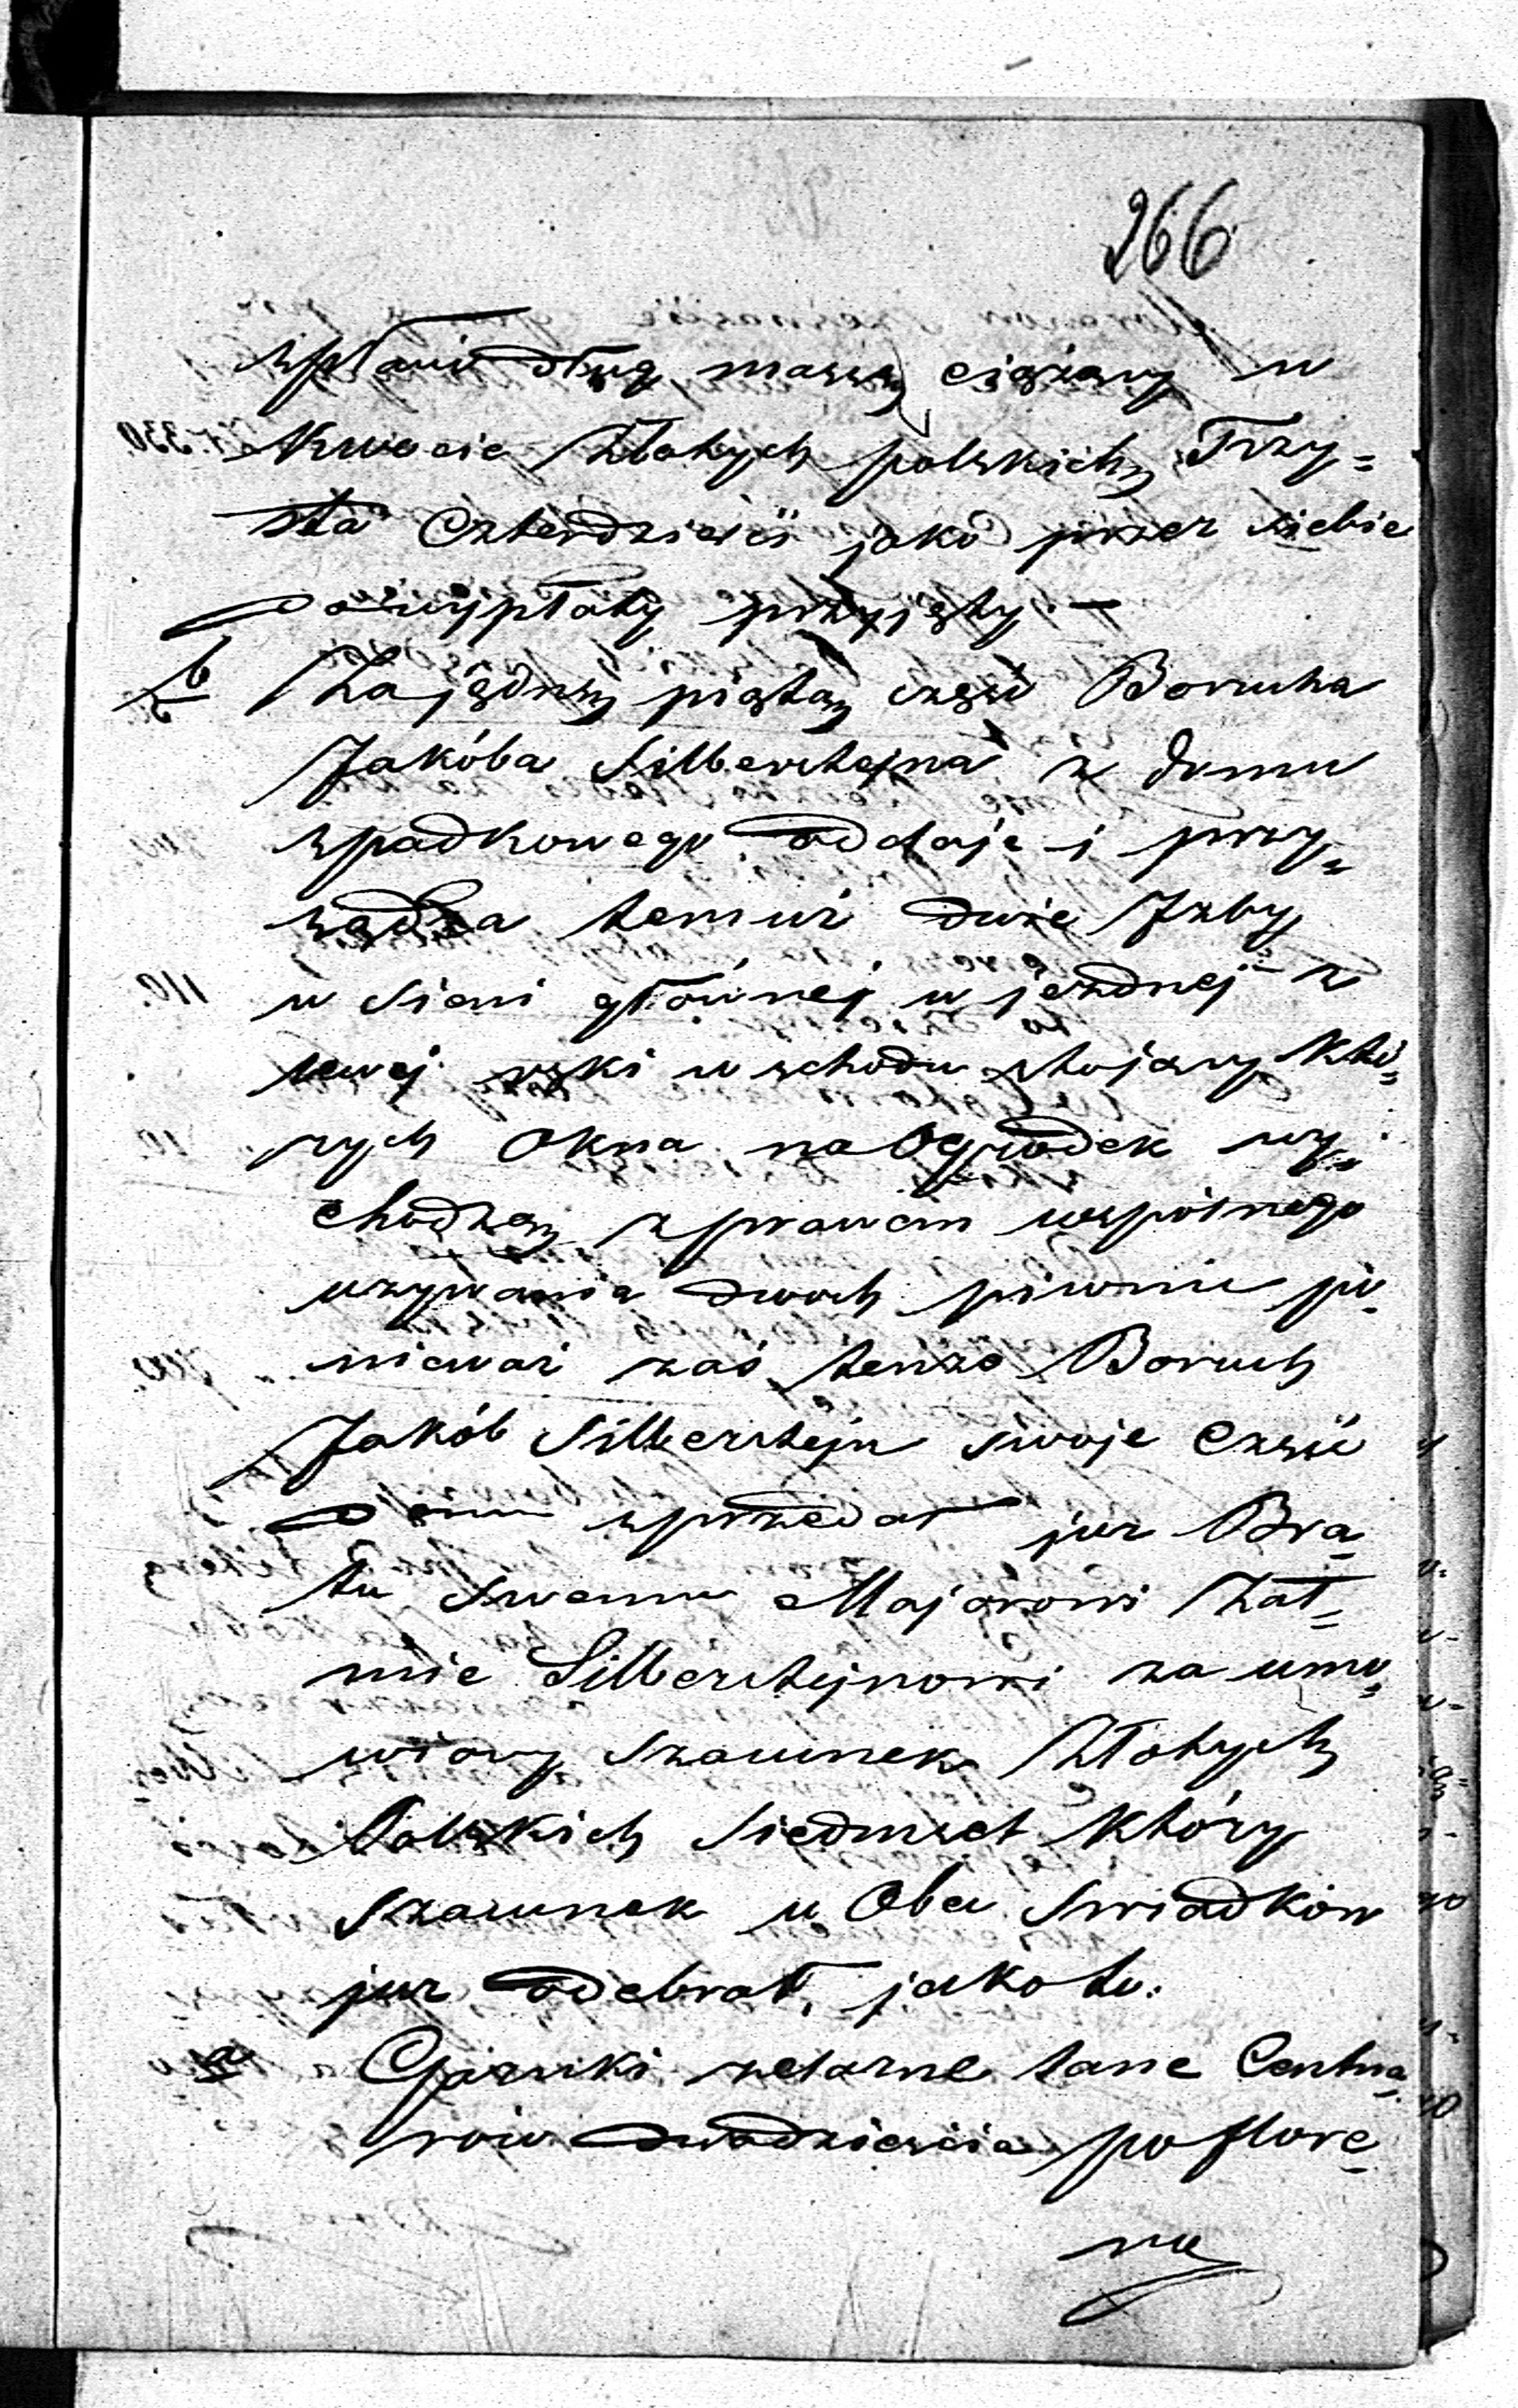 266
spłaci dług massę ciążący w
Kwocie Złotych polskich Trzy=
sta Czterdzieści jako przez siebie
do wypłaty przyjęty. —
b Za jednę piątą część Borucha
Jakóba Silbersteina z domu
spadkowego oddaje i przy=
sądza temuż dwie Izby
w Sieni głównej w jednej z
lewej ręki wschodu stojący Któ=
rych Okna na Ogrodek wy=
chodzą z prawem wspólnego
uzywania dwóch piwnic po=
niewaz zaś tenze Boruch
Jakób Silberstejn swoje Częsć
domu sprzedał juz Bra=
tu swemu Majorowi Zał=
mie Silberstejnowi za umo=
wiony Szacunek Złotych
Polskich Siedmset Który
Szacunek u Obu Swiadków
juz odebrał, jakoto:
a Garnki zelazne lane Centna=
rów dwadzieścia po flore=
na